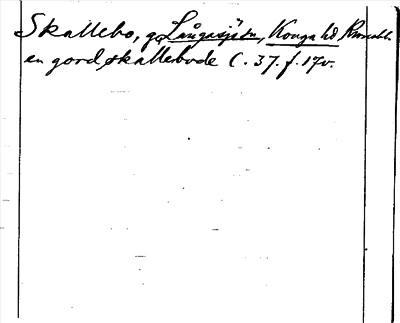 Skallebo, gd, Långasjö sn, Konga hd
en gord, skallebode C. 37. f. 17v.